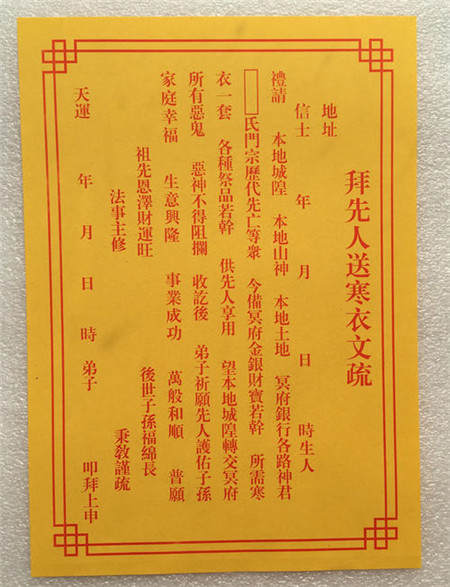 拜先人送寒衣文疏
地址
信士 年 月 日 時生人
禮請 本地城隍 本地山神 本地土地 冥府銀行各路神君
氏門宗歷代先亡等衆 今備冥府金銀財寶若幹 所需寒
衣一套 各種祭品若幹 供先人享用 望本地城隍轉交冥府
所有惡鬼 惡神不得阻攔 收訖後 弟子祈願先人護佑子孫
家庭幸福 生意興隆 事業成功 萬般和順 普願
祖先恩澤財運旺 後世子孫福綿長
法事主修 秉教謹疏
天運 年 月 日 時 弟子 叩拜上申